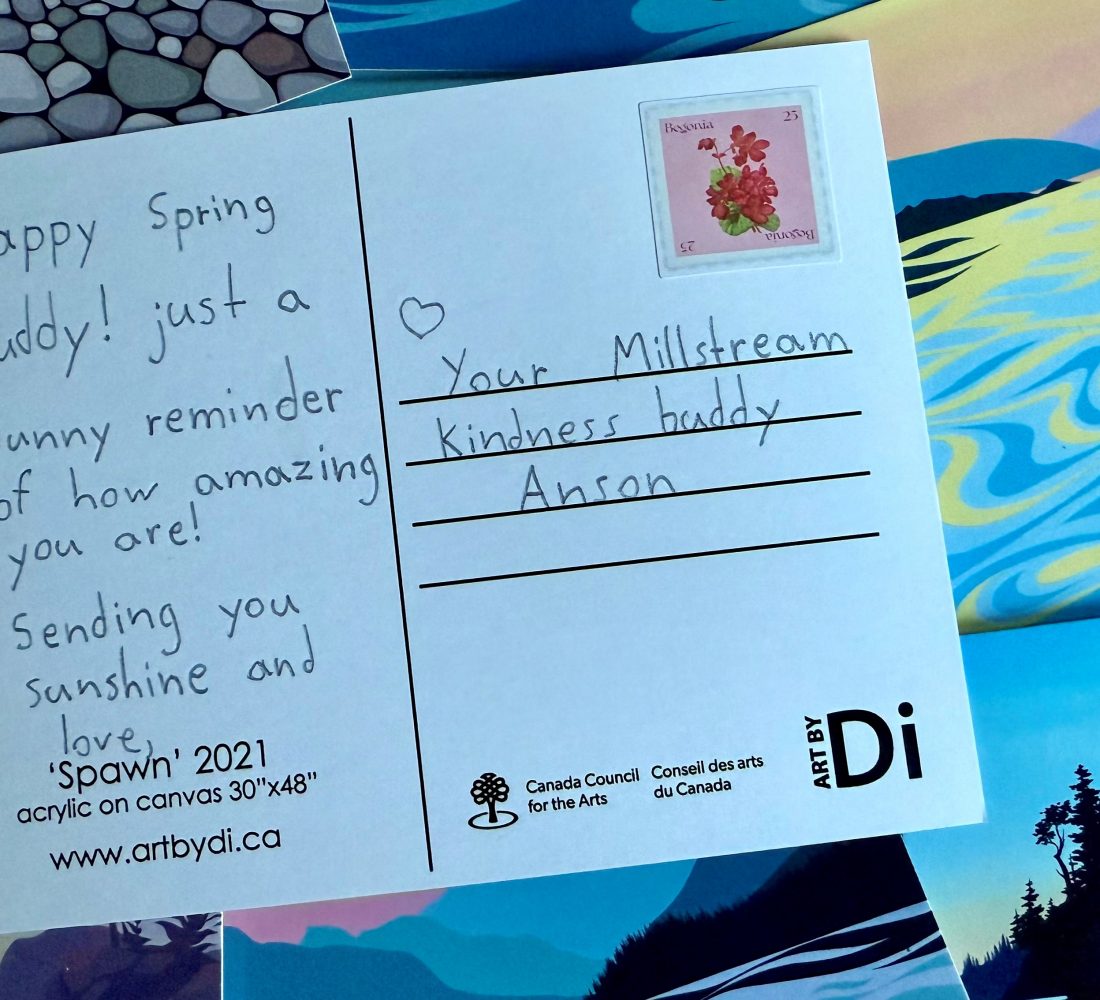 appy Spring
uddy! just a
unny reminder
of how amazing
you are!
Sending you
sunshine and
love,
'Spawn' 2021
acrylic on canvas 30"x48"
www.artbydi.ca
Begonia 25
25 Begonia
Your Millstream
kindness buddy
Anson
Canada Council Conseil des arts
for the Arts du Canada
ART BY Di